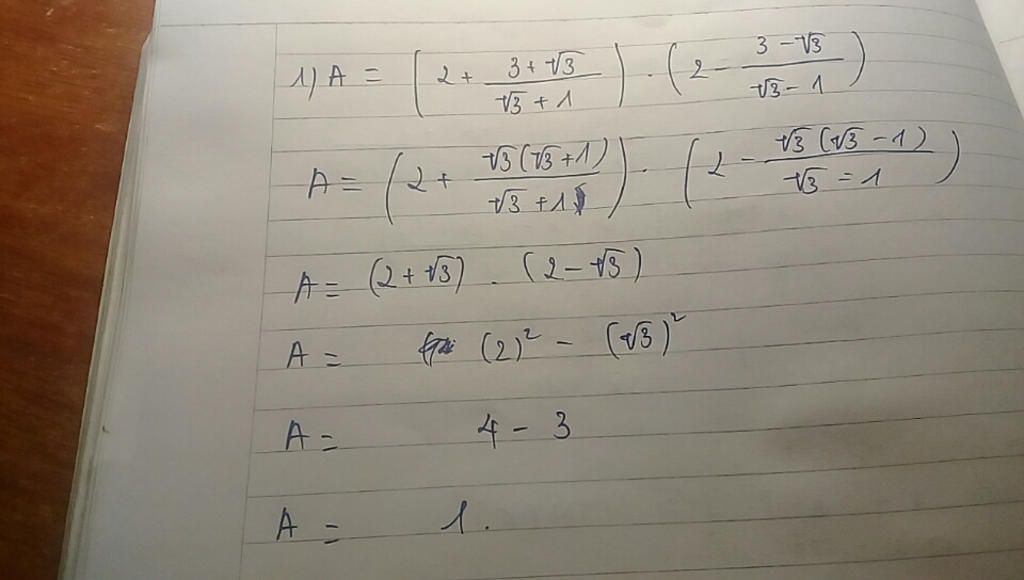 1) A = (2 + (3 + √3)/(√3 + 1)) . (2 - (3 - √3)/(√3 - 1))
A = (2 + √3(√3 + 1)/(√3 + 1)) . (2 - √3(√3 - 1)/(√3 = 1))
A = (2 + √3) . (2 - √3)
A = (2)² - (√3)²
A = 4 - 3
A = 1.